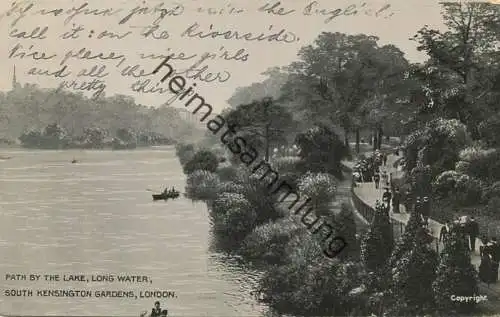 as the English
call it: on the Riverside
Nice place, nice girls
and all the other
pretty things
heimatsammlung.de
PATH BY THE LAKE, LONG WATER,
SOUTH KENSINGTON GARDENS, LONDON.
Copyright